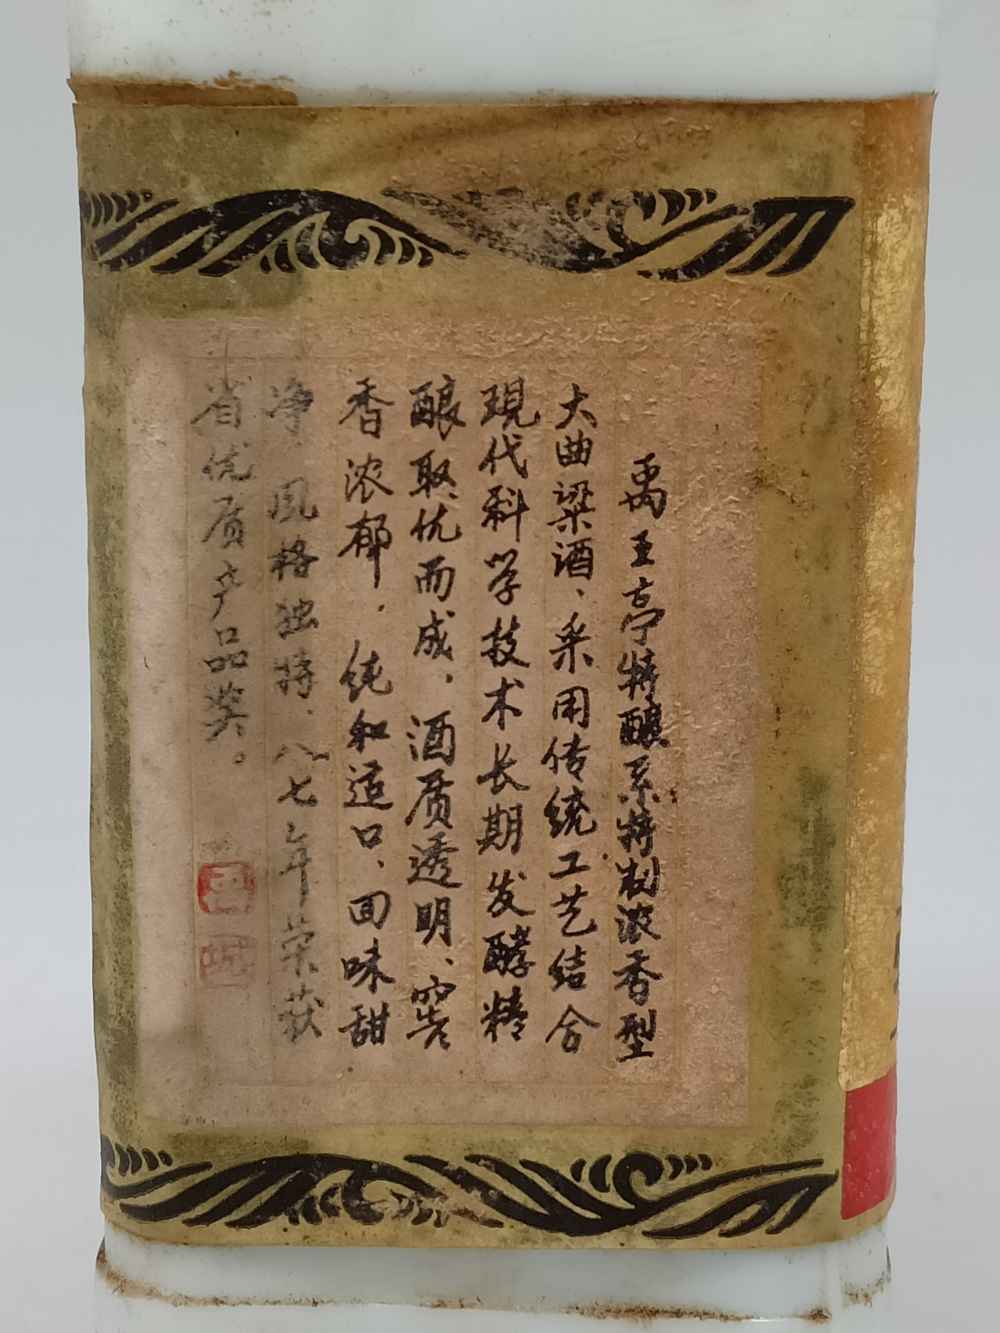 禹王亭特酿系特制浓香型
大曲粱酒、采用传统工艺结合
現代科学技术长期发酵精
酿取优而成，酒质透明、窖
香浓郁，纯和适口、回味甜
净，风格独特、八七年荣获
省优质产品奖。